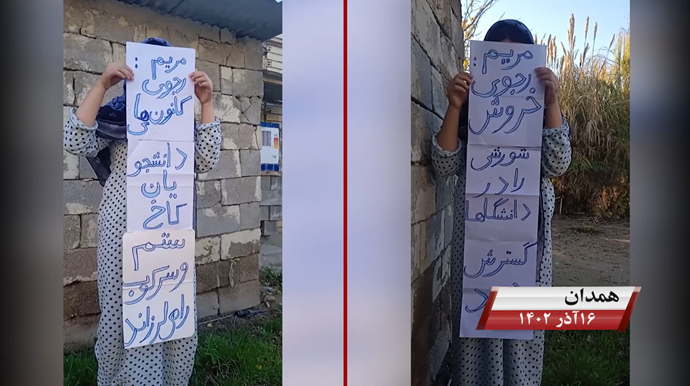 مریم :
رجوی
کانون‌های
دانشجو
یان
کاخ
ستم
وسرکوب
رامی لرزاند
مریم :
رجوی
خروش
شورشی
رادر
دانشگاها
گسترش
همدان
۱۶آذر ۱۴۰۲